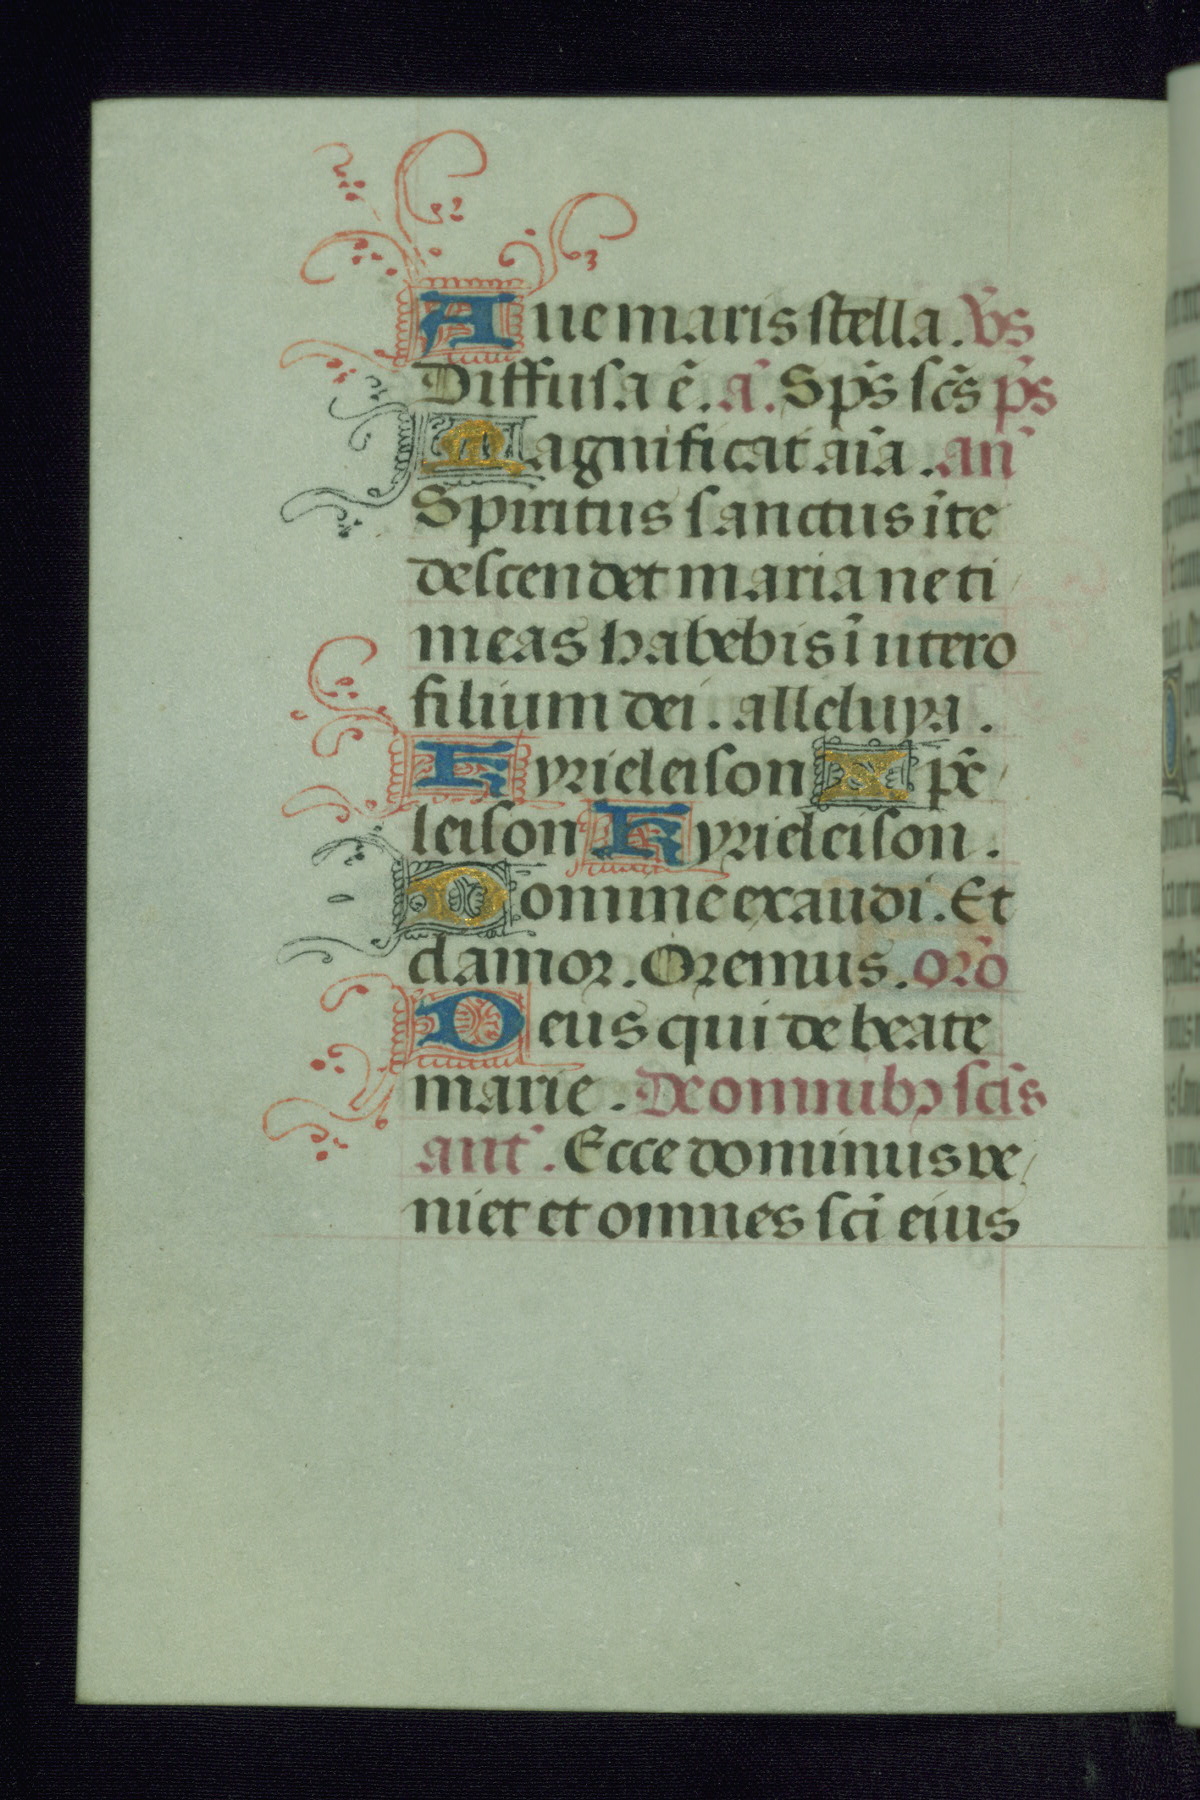 Aue maris stella. v̄s
Diffusa ē. a̾. Sp̄s sc̄s p̄s
Magnificat aīa. an̾
Spiritus sanctus ī te
descendet maria ne ti
meas habebis ī utero
filium dei. alleluya.
Kyrieleison Xp̄e
leison Kyrieleison.
Domine exaudi. Et
clamor. Oremus. orō
Deus qui de beate
marie. De omnibꝫ sc̄is
ant̾. Ecce dominus ve
niet et omnes sc̄i eius